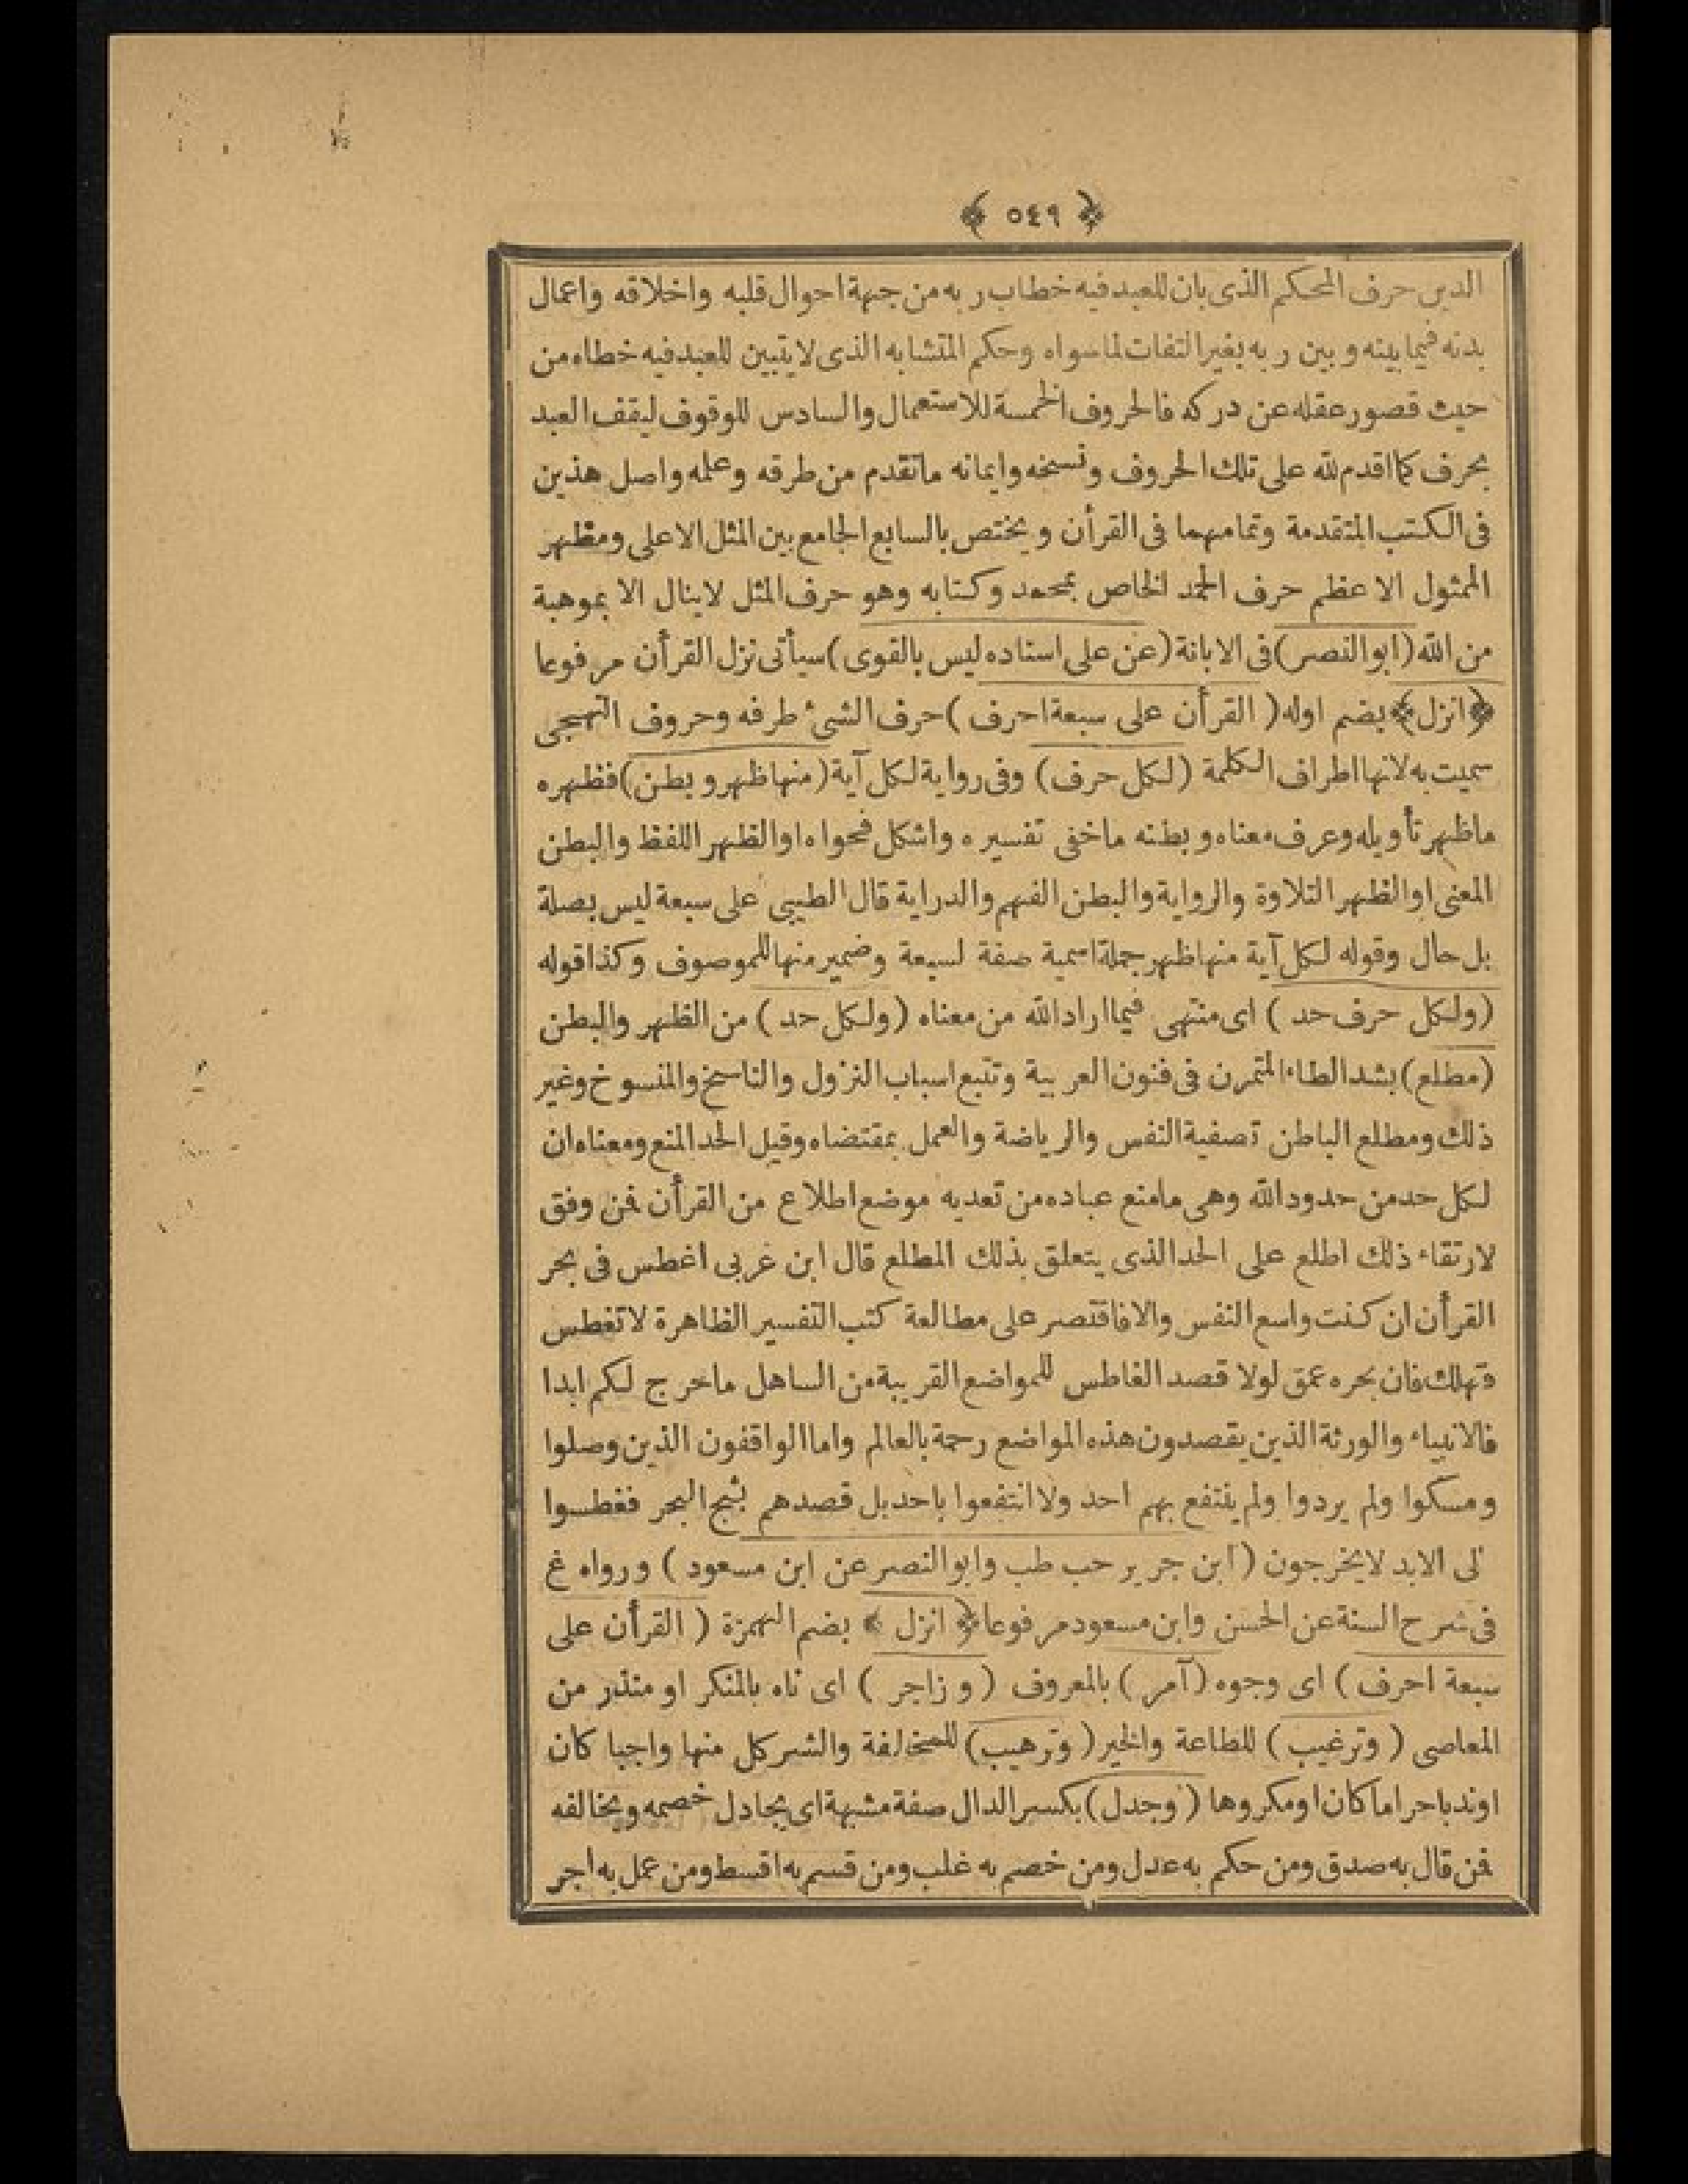 ﴿ ٥٤٩ ﴾
الدين حرف المحكم الذى بان للعبد فيه خطاب ربه من جهة احوال قلبه واخلاقه واعمال
بدنه فيما بينه وبين ربه بغير التفات لما سواه وحكم المتشابه الذى لا يتبين للعبد فيه خطاه من
حيث قصور عقله عن دركه فالحروف الخمسة للاستعمال والسادس للوقوف ليقف العبد
بحرف كما اقدم لله على تلك الحروف ونسخه وايمانه ماتقدم من طرقه وعلمه واصل هذين
فى الكتب المتقدمة وتمامهما فى القرأن ويختص بالسابع الجامع بين المثل الاعلى ومظهر
الممثول الاعظم حرف الحمد الخاص بمحمد وكتابه وهو حرف المثل لاينال الا بموهبة
من الله (ابو النصر) فى الابانة (عن على اسناده ليس بالقوى) سيأتى نزل القرأن مرفوعا
﴿انزل﴾ بضم اوله (القرأن على سبعة احرف) حرف الشئ طرفه وحروف التهجى
سميت به لانها اطراف الكلمة (لكل حرف) وفى رواية لكل آية (منها ظهر وبطن) فظهره
ماظهر تأويله وعرف معناه وبطنه ماخفى تفسيره واشكل فحواه اوالظهر اللفظ والبطن
المعنى اوالظهر التلاوة والرواية والبطن الفهم والدراية قال الطيبى على سبعة ليس بصلة
بل حال وقوله لكل آية منها ظهر جملة اسمية صفة لسبعة وضمير منها للموصوف وكذا قوله
(ولكل حرف حد) اى منتهى فيما اراد الله من معناه (ولكل حد) من الظهر والبطن
(مطلع) بشد الطاء المتمرن فى فنون العربية وتتبع اسباب النزول والناسخ والمنسوخ وغير
ذلك ومطلع الباطن تصفية النفس والرياضة والعمل بمقتضاه وقيل الحد المنع ومعناه ان
لكل حد من حدود الله وهى مامنع عباده من تعديه موضع اطلاع من القرأن فمن وفق
لارتقاء ذلك اطلع على الحد الذى يتعلق بذلك المطلع قال ابن عربى اغطس فى بحر
القرأن ان كنت واسع النفس والا فاقتصر على مطالعة كتب التفسير الظاهرة لاتغطس
فتهلك فان بحره عمق لولا قصد الغاطس للمواضع القريبة من الساهل ماخرج لكم ابدا
فالانبياء والورثة الذين يقصدون هذه المواضع رحمة بالعالم واما الواقفون الذين وصلوا
ومسكوا ولم يردوا ولم ينتفع بهم احد ولا انتفعوا باحد بل قصدهم بثبج البحر فغطسوا
لى الابد لايخرجون (ابن جرير حب طب وابو النصر عن ابن مسعود) ورواه غ
فى شرح السنة عن الحسن وابن مسعود مرفوعا ﴿انزل﴾ بضم الهمزة (القرأن على
سبعة احرف) اى وجوه (آمر) بالمعروف (وزاجر) اى ناه بالمنكر او منذر من
المعاصى (وترغيب) للطاعة والخير (وترهيب) للمخالفة والشر كل منها واجبا كان
اوندبا حراما كان او مكروها (وجدل) بكسر الدال صفة مشبهة اى يجادل خصمه ويخالفه
فمن قال به صدق ومن حكم به عدل ومن خصم به غلب ومن قسم به اقسط ومن عمل به اجر